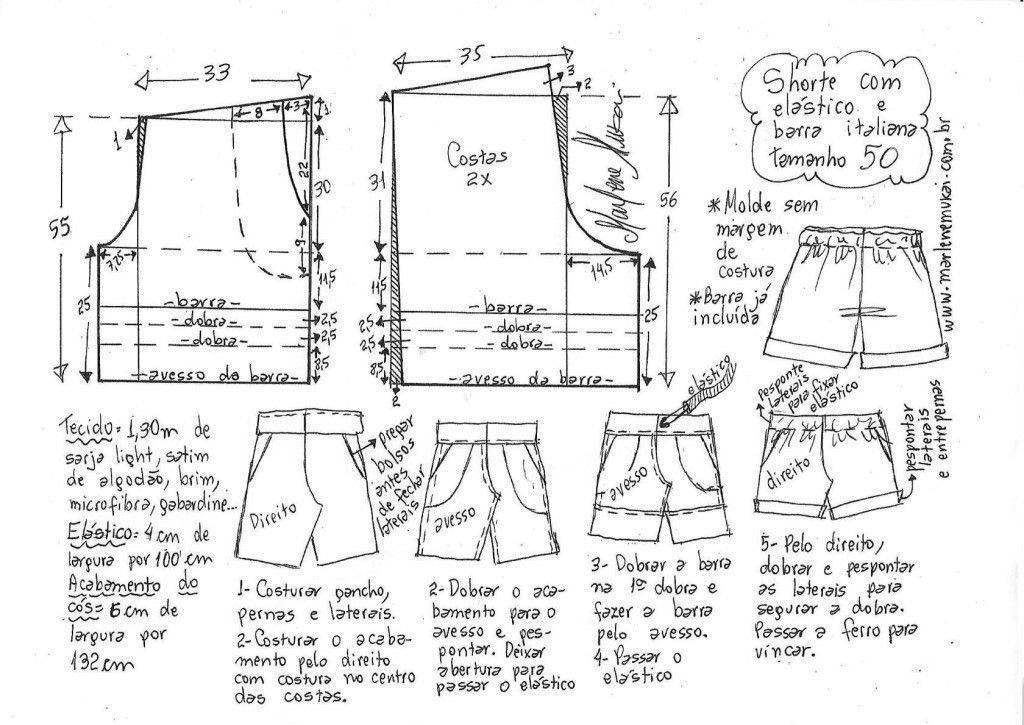 33
1
8
3
1
55
22
30
9
7,25
11,5
25
-barra-
-dobra-
-dobra-
2,5
2,5
8,5
-avesso da barra-
35
3
2
Costas
2X
31
56
14,5
11,5
25
-barra-
-dobra-
-dobra-
2,5
2,5
8,5
-avesso da barra-
2
Marlene Mukai
Shorte com
elástico e
barra italiana
tamanho 50
www.marlenemukai.com.br
*Molde sem
margem
de
costura
*Barra já
incluída
Tecido= 1,30m de
sarja light, satim
de algodão, brim,
microfibra, gabardine...
Elástico= 4cm de
largura por 100 cm
Acabamento do
cós= 6cm de
largura por
132cm
Direito
prepar
bolsos
antes
de fechar
laterais
1- Costurar gancho,
pernas e laterais.
2-Costurar o acaba-
mento pelo direito
com costura no centro
das costas.
avesso
2- Dobrar o aca-
bamento para o
avesso e pes-
pontar. Deixar
abertura para
passar o elástico
elástico
avesso
3- Dobrar a barra
na 1ª dobra e
fazer a barra
pelo avesso.
4- Passar o
elástico
pesponte
laterais
para fixar
elástico
direito
pespontar
laterais
e entrepernas
5- Pelo direito,
dobrar e pespontar
as laterais para
segurar a dobra.
Passar a ferro para
vincar.